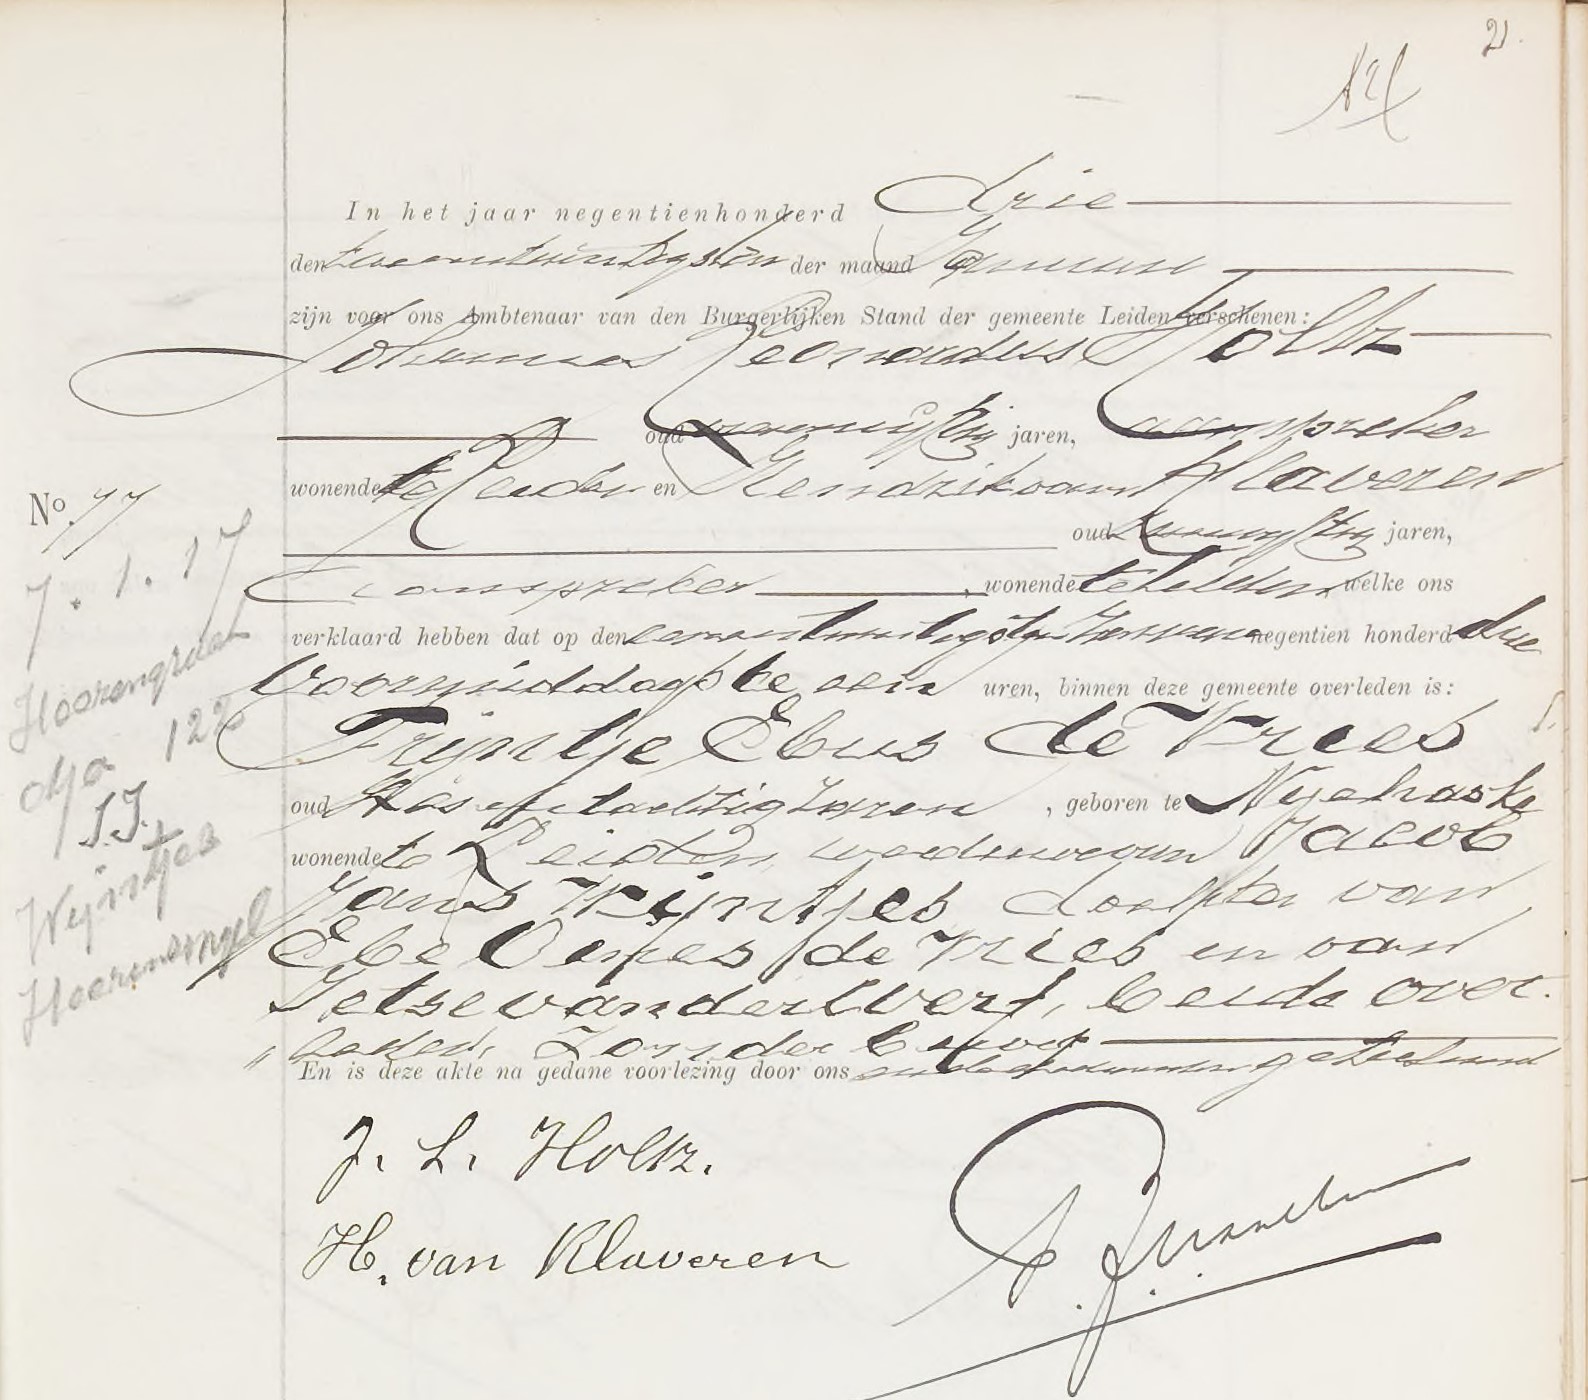 21.
In het jaar negentienhonderd drie
den tweeentwintigsten der maand Januari
zijn voor ons Ambtenaar van den Burgerlijken Stand der gemeente Leiden verschenen:
Johannes Leonardus Holtz
oud jaren, aanspreker
wonende te Leiden en Hendrik van Klaveren
oud jaren,
aanspreker, wonende te Leiden, welke ons
verklaard hebben dat op den eenentwintigsten Januari negentien honderd drie
voormiddags te een uren, binnen deze gemeente overleden is:
Trijntje Ebus de Vries
oud zes en tachtig jaren, geboren te Nyehaske
wonende te Leiden, weduwe van Jacob
Jans Wijntjes dochter van
Ebe de Vries en van
Jetse van der Werf, beide over-
"leden, zonder beroep
En is deze akte na gedane voorlezing door ons en de comparanten geteekend
J. L. Holtz.
H. van Klaveren
No. 77
7.1.17
Heerengracht
122
Wijntjes
Heerensingel